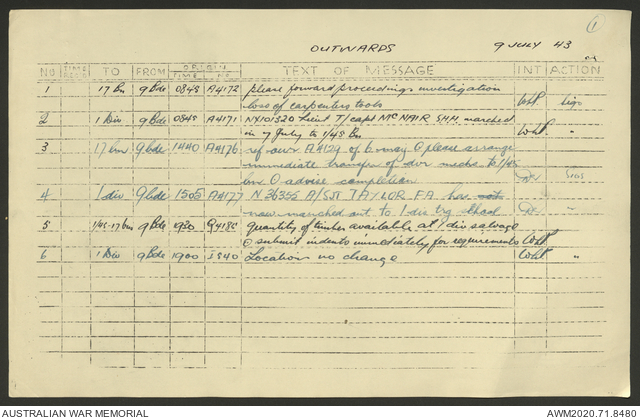 1
OUTWARDS 9 JULY 43
NO TIME TO FROM ORIGIN TIME NO TEXT OF MESSAGE INT ACTION
1 17 Bn 9 Bde 0845 A4172 please forward proceedings investigation
loss of carpenters tools WHL Sigs
2 1 Div 9 Bde 0845 A4171 NX101320 Lieut T/Capt McNAIR S.H.H. marched
in 7 July to 1/45 Bn WHL "
3 17 bn 9 bde 1440 A4176 ref our A4129 of 6 may O please arrange
immediate transfer of dvr mechs to 1/45
bn O advise completion Sigs
4 1 div 9 bde 1505 A4177 N36355 A/Sjt TAYLOR F.A. has not
now marched out to 1 div trg school "
5 1/45-17 bns 9 Bde 1930 Q4185 quantity of timber available at 1 div salvage
O submit indents immediately for requirements WHL "
6 1 Div 9 Bde 1900 S540 Location no change WHL "
AUSTRALIAN WAR MEMORIAL AWM2020.71.8480